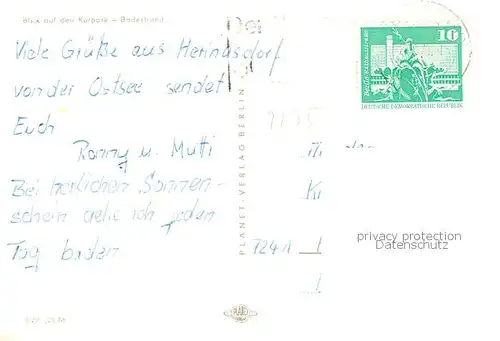 Blick auf den Kurpark – Badestrand
Viele Grüße aus Hennigsdorf
von der Ostsee sendet
Euch
Ronny u. Mutti
Bei herlichen Sonnen-
schein gehe ich jeden
Tag baden
PLANET-VERLAG BERLIN
Berlin-Rathausstrasse
10
DEUTSCHE DEMOKRATISCHE REPUBLIK
7241
privacy protection
Datenschutz
PLANET